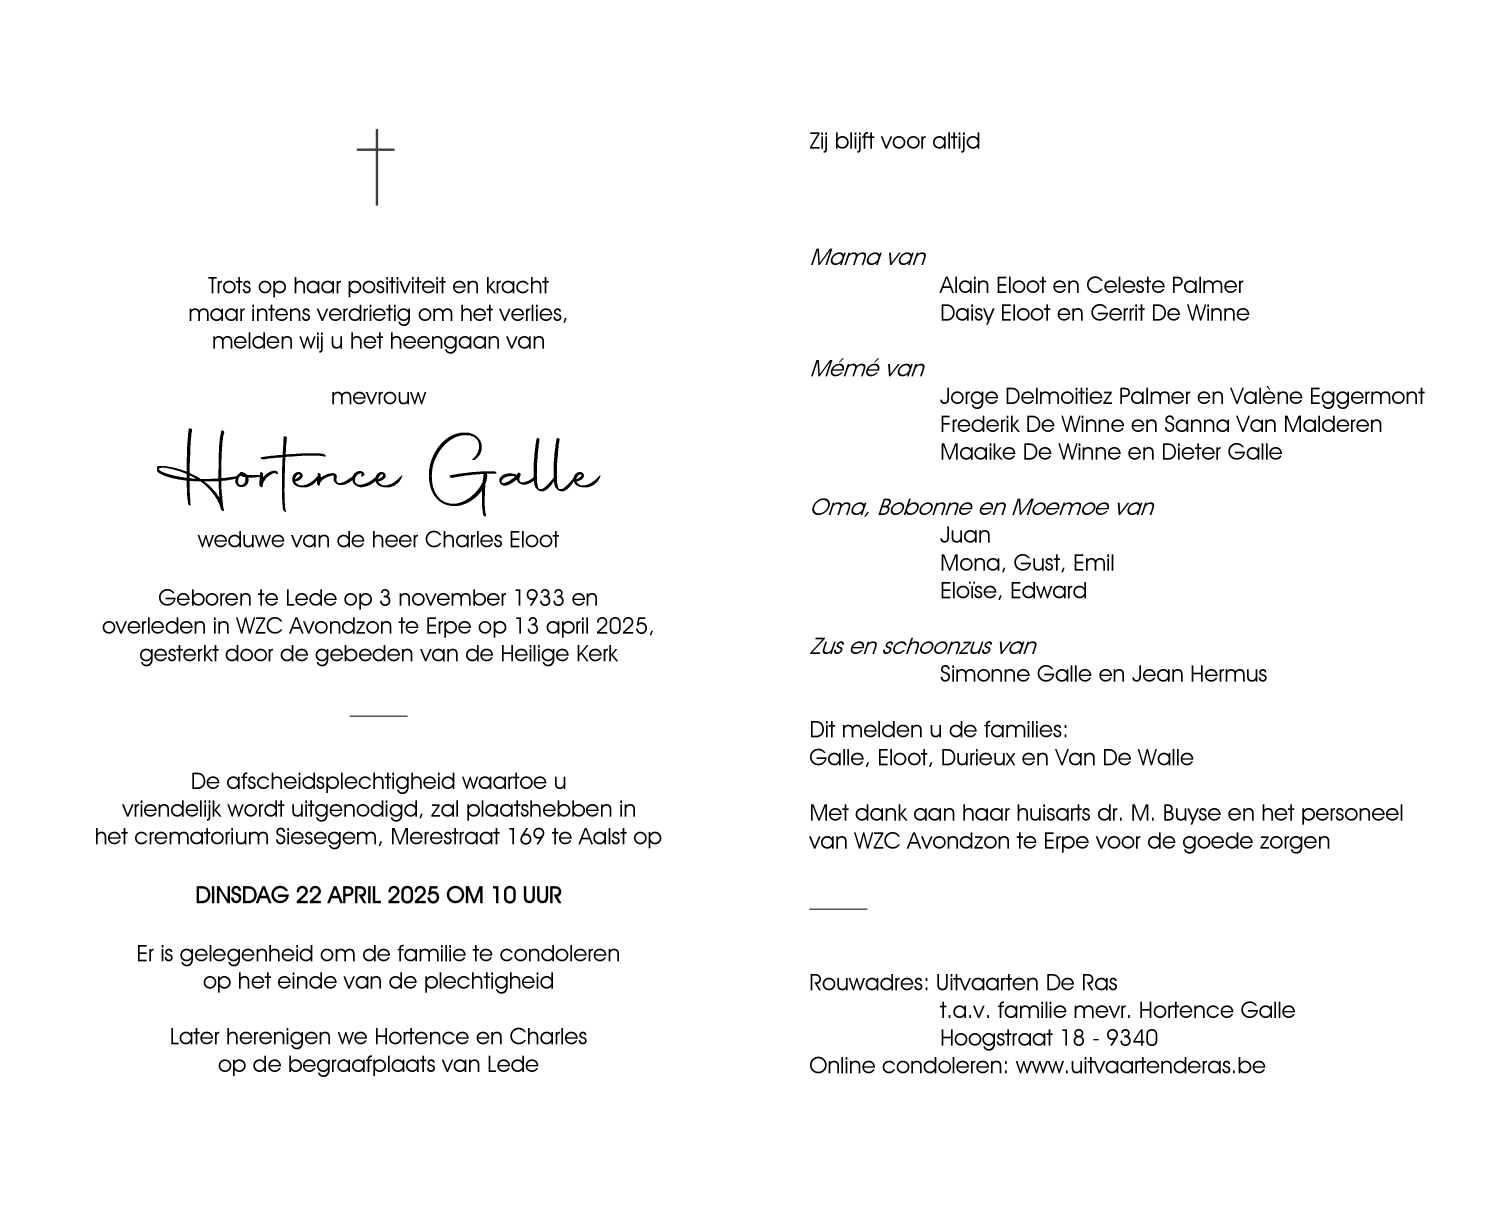 Trots op haar positiviteit en kracht
maar intens verdrietig om het verlies,
melden wij u het heengaan van
mevrouw
Hortence Galle
weduwe van de heer Charles Eloot
Geboren te Lede op 3 november 1933 en
overleden in WZC Avondzon te Erpe op 13 april 2025,
gesterkt door de gebeden van de Heilige Kerk
De afscheidsplechtigheid waartoe u
vriendelijk wordt uitgenodigd, zal plaatshebben in
het crematorium Siesegem, Merestraat 169 te Aalst op
DINSDAG 22 APRIL 2025 OM 10 UUR
Er is gelegenheid om de familie te condoleren
op het einde van de plechtigheid
Later herenigen we Hortence en Charles
op de begraafplaats van Lede
Zij blijft voor altijd
Mama van
Alain Eloot en Celeste Palmer
Daisy Eloot en Gerrit De Winne
Mémé van
Jorge Delmoitiez Palmer en Valène Eggermont
Frederik De Winne en Sanna Van Malderen
Maaike De Winne en Dieter Galle
Oma, Bobonne en Moemoe van
Juan
Mona, Gust, Emil
Eloïse, Edward
Zus en schoonzus van
Simonne Galle en Jean Hermus
Dit melden u de families:
Galle, Eloot, Durieux en Van De Walle
Met dank aan haar huisarts dr. M. Buyse en het personeel
van WZC Avondzon te Erpe voor de goede zorgen
Rouwadres: Uitvaarten De Ras
t.a.v. familie mevr. Hortence Galle
Hoogstraat 18 - 9340
Online condoleren: www.uitvaartenderas.be